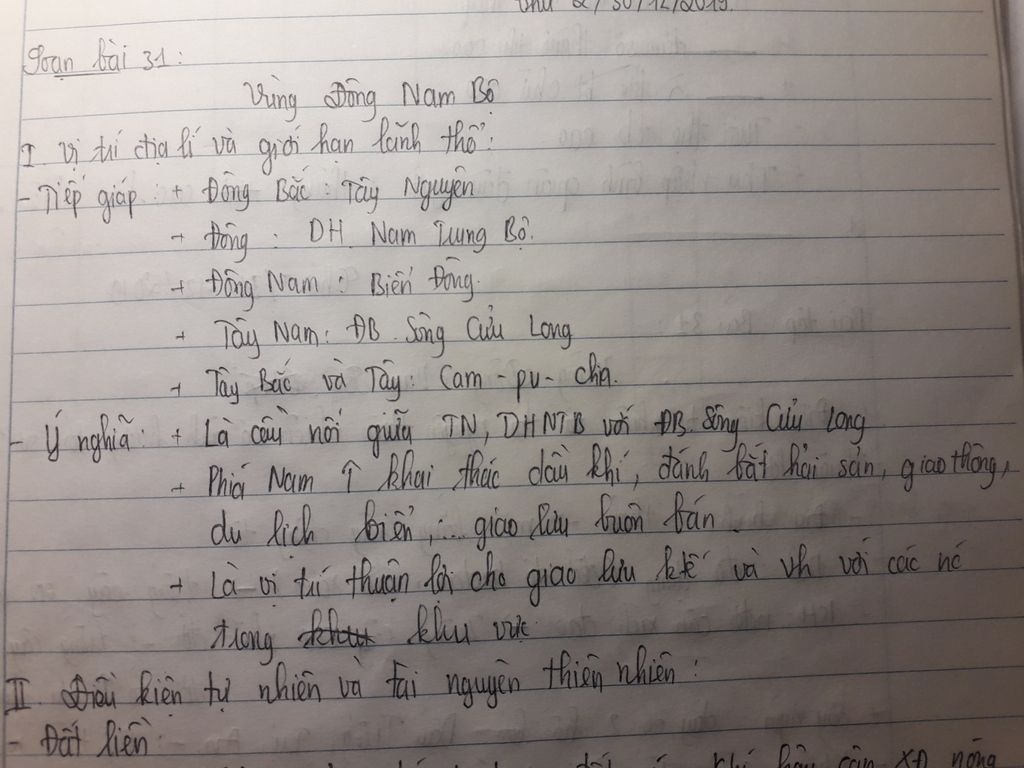 Thứ 2/30/12/2019.
Soạn bài 31:
Vùng Đông Nam Bộ
I. Vị trí địa lí và giới hạn lãnh thổ:
- Tiếp giáp + Đông Bắc: Tây Nguyên
+ Đông: DH Nam Trung Bộ.
+ Đông Nam: Biển Đông.
+ Tây Nam: ĐB Sông Cửu Long
+ Tây Bắc và Tây: Cam-pu-chia.
- Ý nghĩa: + Là cầu nối giữa TN, DHNTB với ĐB Sông Cửu Long
+ Phía Nam ↑ khai thác dầu khí, đánh bắt hải sản, giao thông,
du lịch biển,... giao lưu buôn bán.
+ Là vị trí thuận lợi cho giao lưu ktế và vh với các nc
trong khu vực.
II. Điều kiện tự nhiên và tài nguyên thiên nhiên:
- Đất liền:
khí hậu cận XĐ nóng